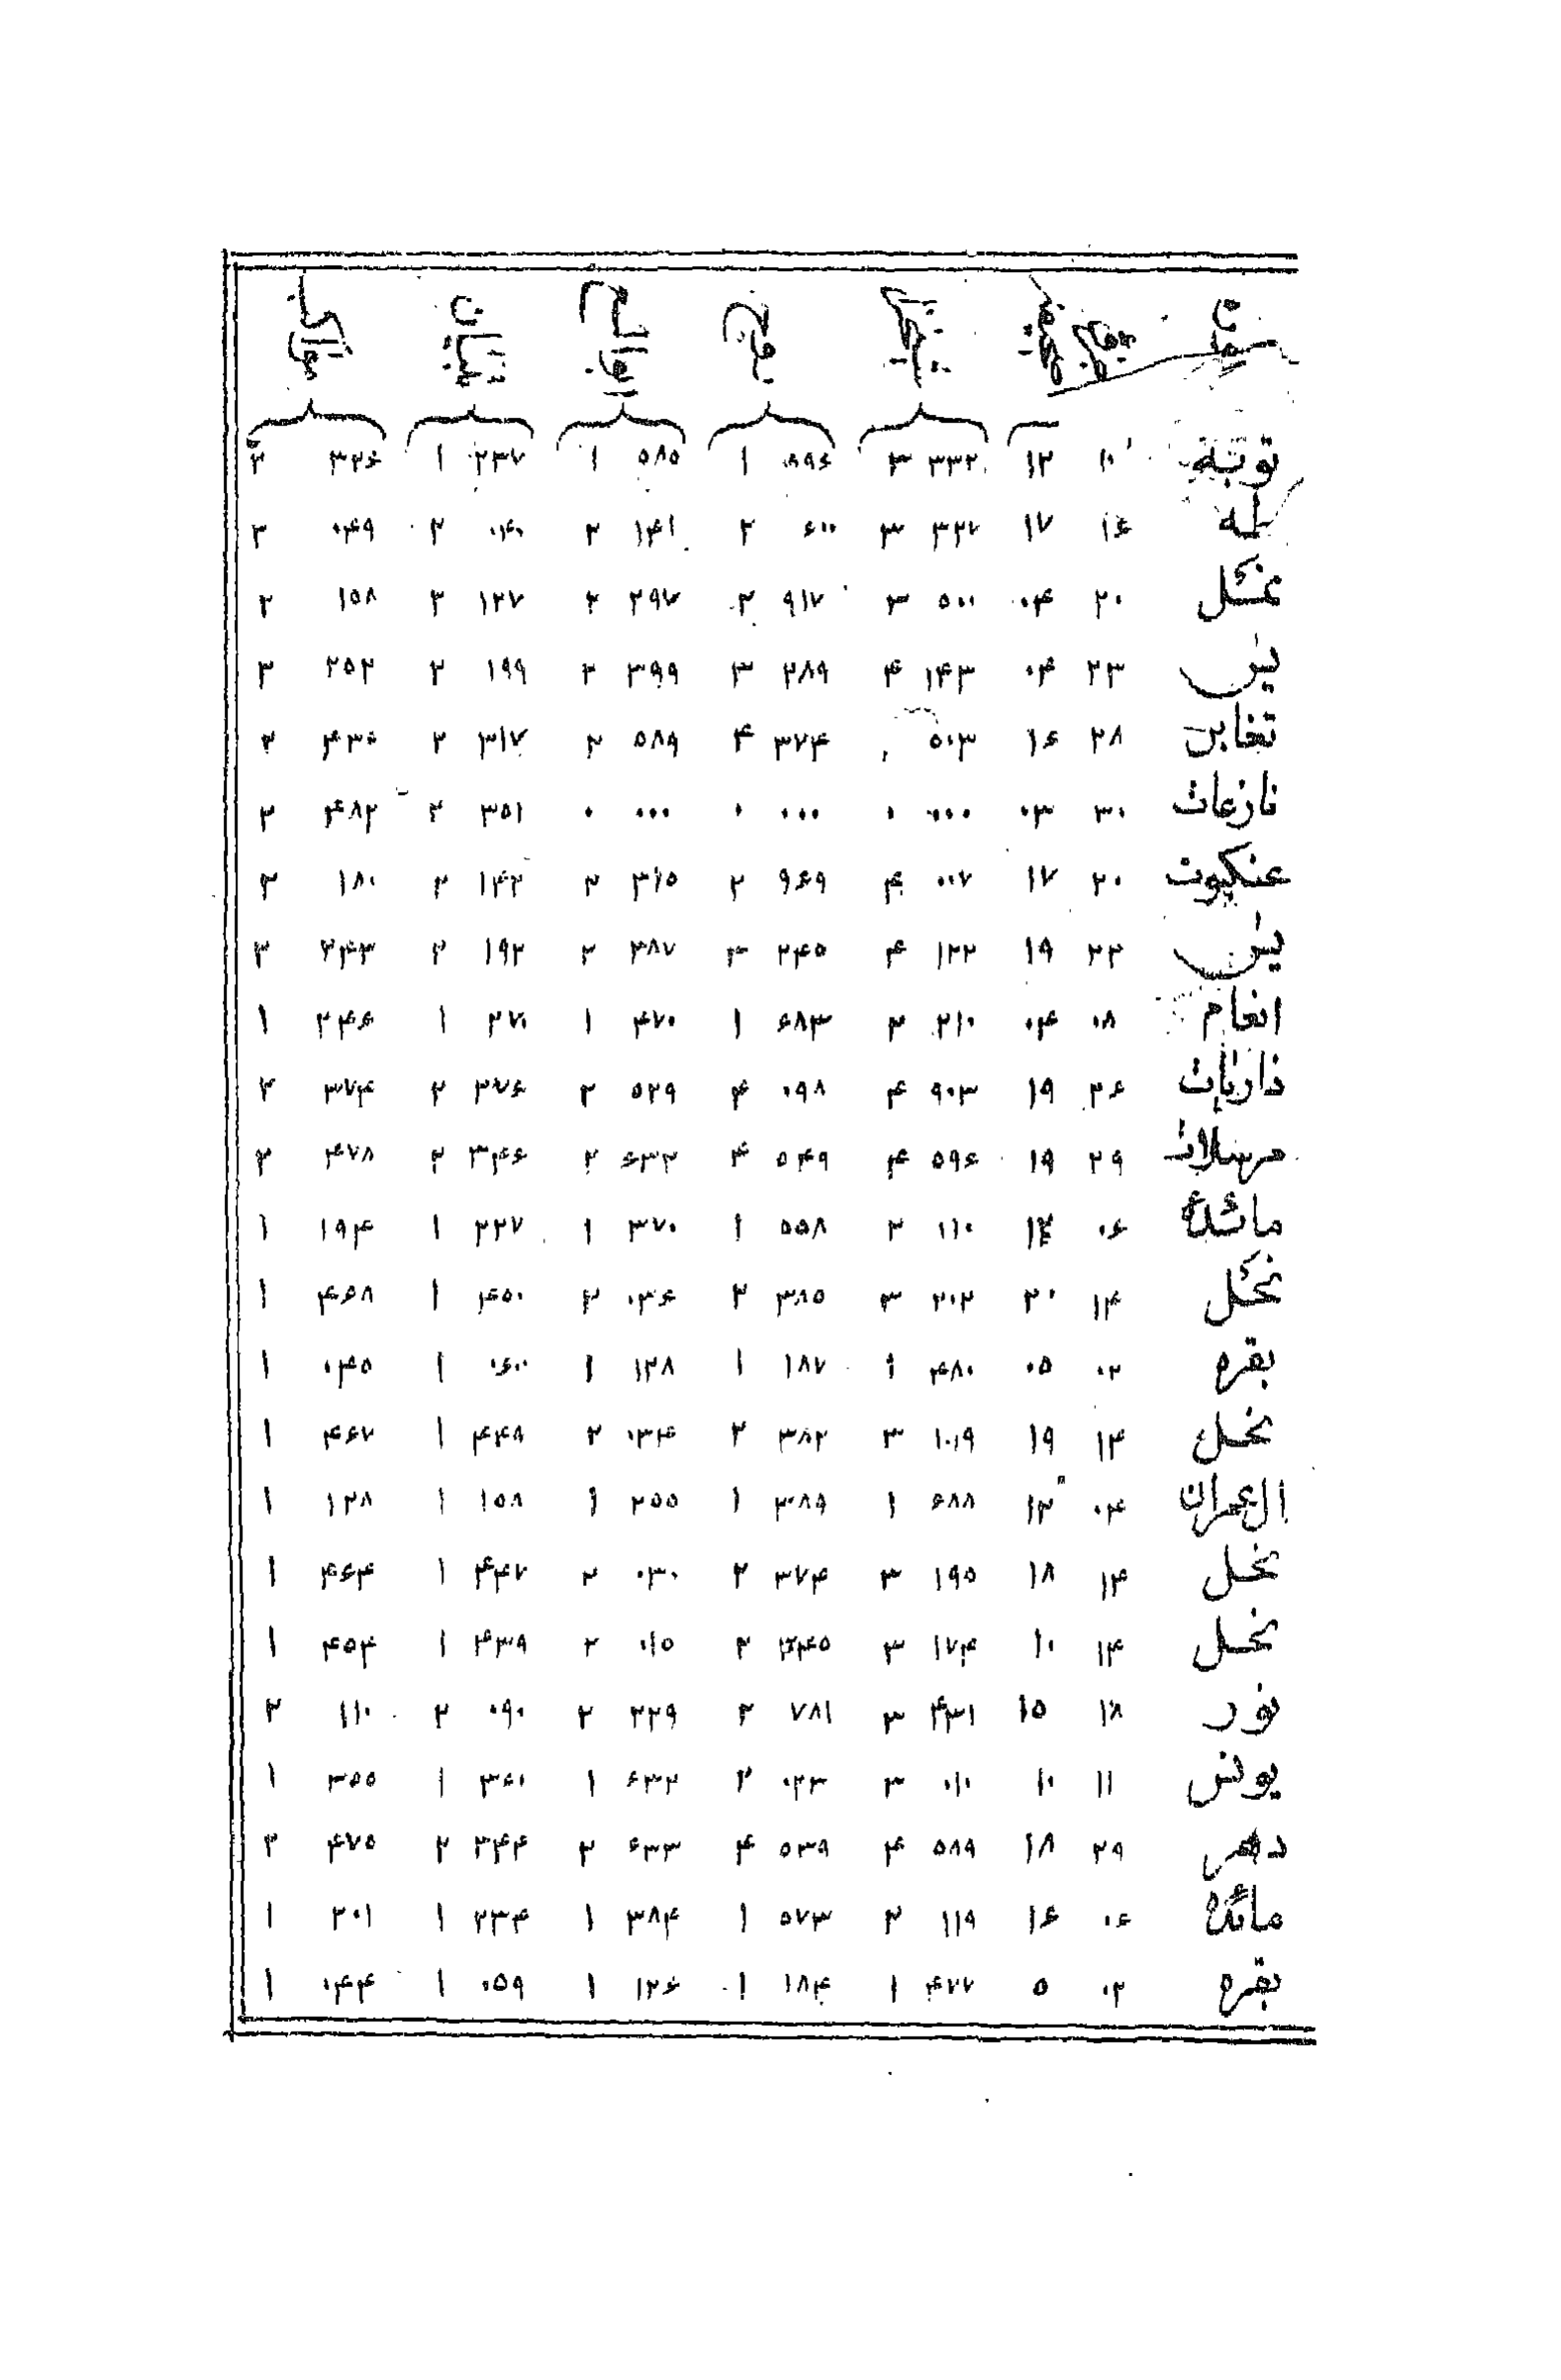 توبة ١٠ ١٢ ٣٣٢ ٣ ٨٩۶ ١ ۵٨۵ ١ ٢٣٧ ١ ٣٢۶ ٢
طه ١۶ ١٧ ٣٢٧ ٣ ۶٠٠ ٢ ١۴١ ٢ ٠۴٠ ٢ ٠۴٩ ٢
نمل ٢٠ ٠۴ ۵٠٠ ٣ ٩١٧ ٢ ٢٩٧ ٢ ١٢٧ ٢ ١۵٨ ٢
يس ٢٣ ٠۴ ١۴٣ ۴ ٢٨٩ ٣ ٣٩٩ ٢ ١٩٩ ٢ ٢۵٢ ٢
تغابن ٢٨ ١۶ ۵٠٣ ٣٧۴ ۴ ۵٨٩ ٢ ٣١٧ ٢ ۴٣۶ ٢
نازعات ٣٠ ٠٣ ٠٠٠ ٠ ٠٠٠ ٠ ٠٠٠ ٠ ٣۵١ ٢ ۴٨٢ ٢
عنكبوت ٢٠ ١٧ ٠٠٧ ۴ ٩۶٩ ٢ ٣١۵ ٢ ١۴٢ ٢ ١٨٠ ٢
يس ٢٢ ١٩ ١٢٢ ۴ ٢۴۵ ٣ ٣٨٧ ٢ ١٩٢ ٢ ٢۴٣ ٢
انعام ٠٨ ٠۴ ٢١٠ ٢ ۶٨٣ ١ ۴٧٠ ١ ٢٧٠ ١ ٢۴۶ ١
ذاريات ٢۶ ١٩ ٩٠٣ ۴ ٠٩٨ ۴ ۵٢٩ ٢ ٢٧۶ ٢ ٣٧۴ ٢
مرسلات ٢٩ ١٩ ۵٩۶ ۴ ۵۴٩ ۴ ۶٣٢ ٢ ٣۴۶ ٢ ۴٧٨ ٢
مائدة ٠۶ ١٤ ١١٠ ٢ ۵۵٨ ١ ٣٧٠ ١ ٢٢٧ ١ ١٩۴ ١
نحل ١۴ ٢٠ ٢٠٢ ٣ ٣٨۵ ٢ ٠٣۶ ٢ ۴۵٠ ١ ۴۶٨ ١
بقره ٠٢ ٠۵ ۴٨٠ ١ ١٨٧ ١ ١٢٨ ١ ٠۶٠٠ ١ ٠۴۵ ١
نحل ١۴ ١٩ ١٠١٩ ٣ ٣٨٢ ٢ ٠٣۴ ٢ ۴۴٩ ١ ۴۶٧ ١
ال عمران ٠۴ ١٣ ۶٨٨ ١ ٣٨٩ ١ ٢۵۵ ١ ١۵٨ ١ ١٢٨ ١
نحل ١۴ ١٨ ١٩۵ ٣ ٣٧۴ ٢ ٠٣٠ ٢ ۴۴٧ ١ ۴۶۴ ١
نحل ١۴ ١٠ ١٧۴ ٣ ٣۴۵ ٢ ٠١۵ ٢ ۴٣٩ ١ ۴۵۴ ١
نور ١٨ ١۵ ۴٣١ ٣ ٧٨١ ٢ ٢٢٩ ٢ ٠٩٠ ٢ ١١٠ ٢
يونس ١١ ١٠ ٠١٠ ٣ ٠٢٣ ٢ ۶٣٢ ١ ٣۶٠ ١ ٣۵۵ ١
دهر ٢٩ ١٨ ۵٨٩ ۴ ۵٣٩ ۴ ۶٣٣ ٢ ٣۴۴ ٢ ۴٧۵ ٢
مائدة ٠۶ ١۶ ١١٩ ٢ ۵٧٣ ١ ٣٨۴ ١ ٢٣۴ ١ ٢٠١ ١
بقره ٠٢ ۵ ۴٧٧ ١ ١٨۴ ١ ١٢۶ ١ ٠۵٩ ١ ٠۴۴ ١